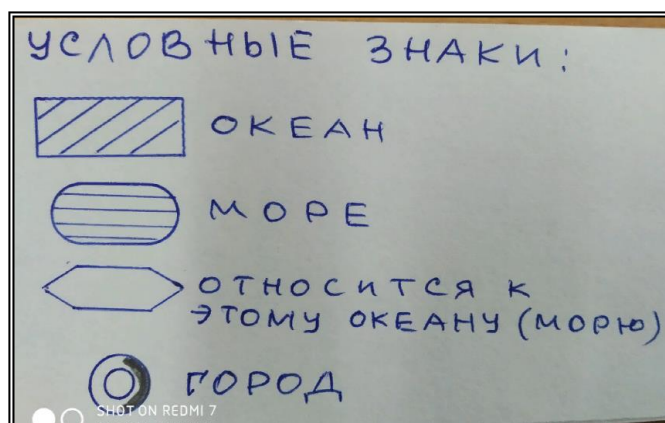 УСЛОВНЫЕ ЗНАКИ:
ОКЕАН
МОРЕ
ОТНОСИТСЯ К
ЭТОМУ ОКЕАНУ (МОРЮ)
ГОРОД
SHOT ON REDMI 7